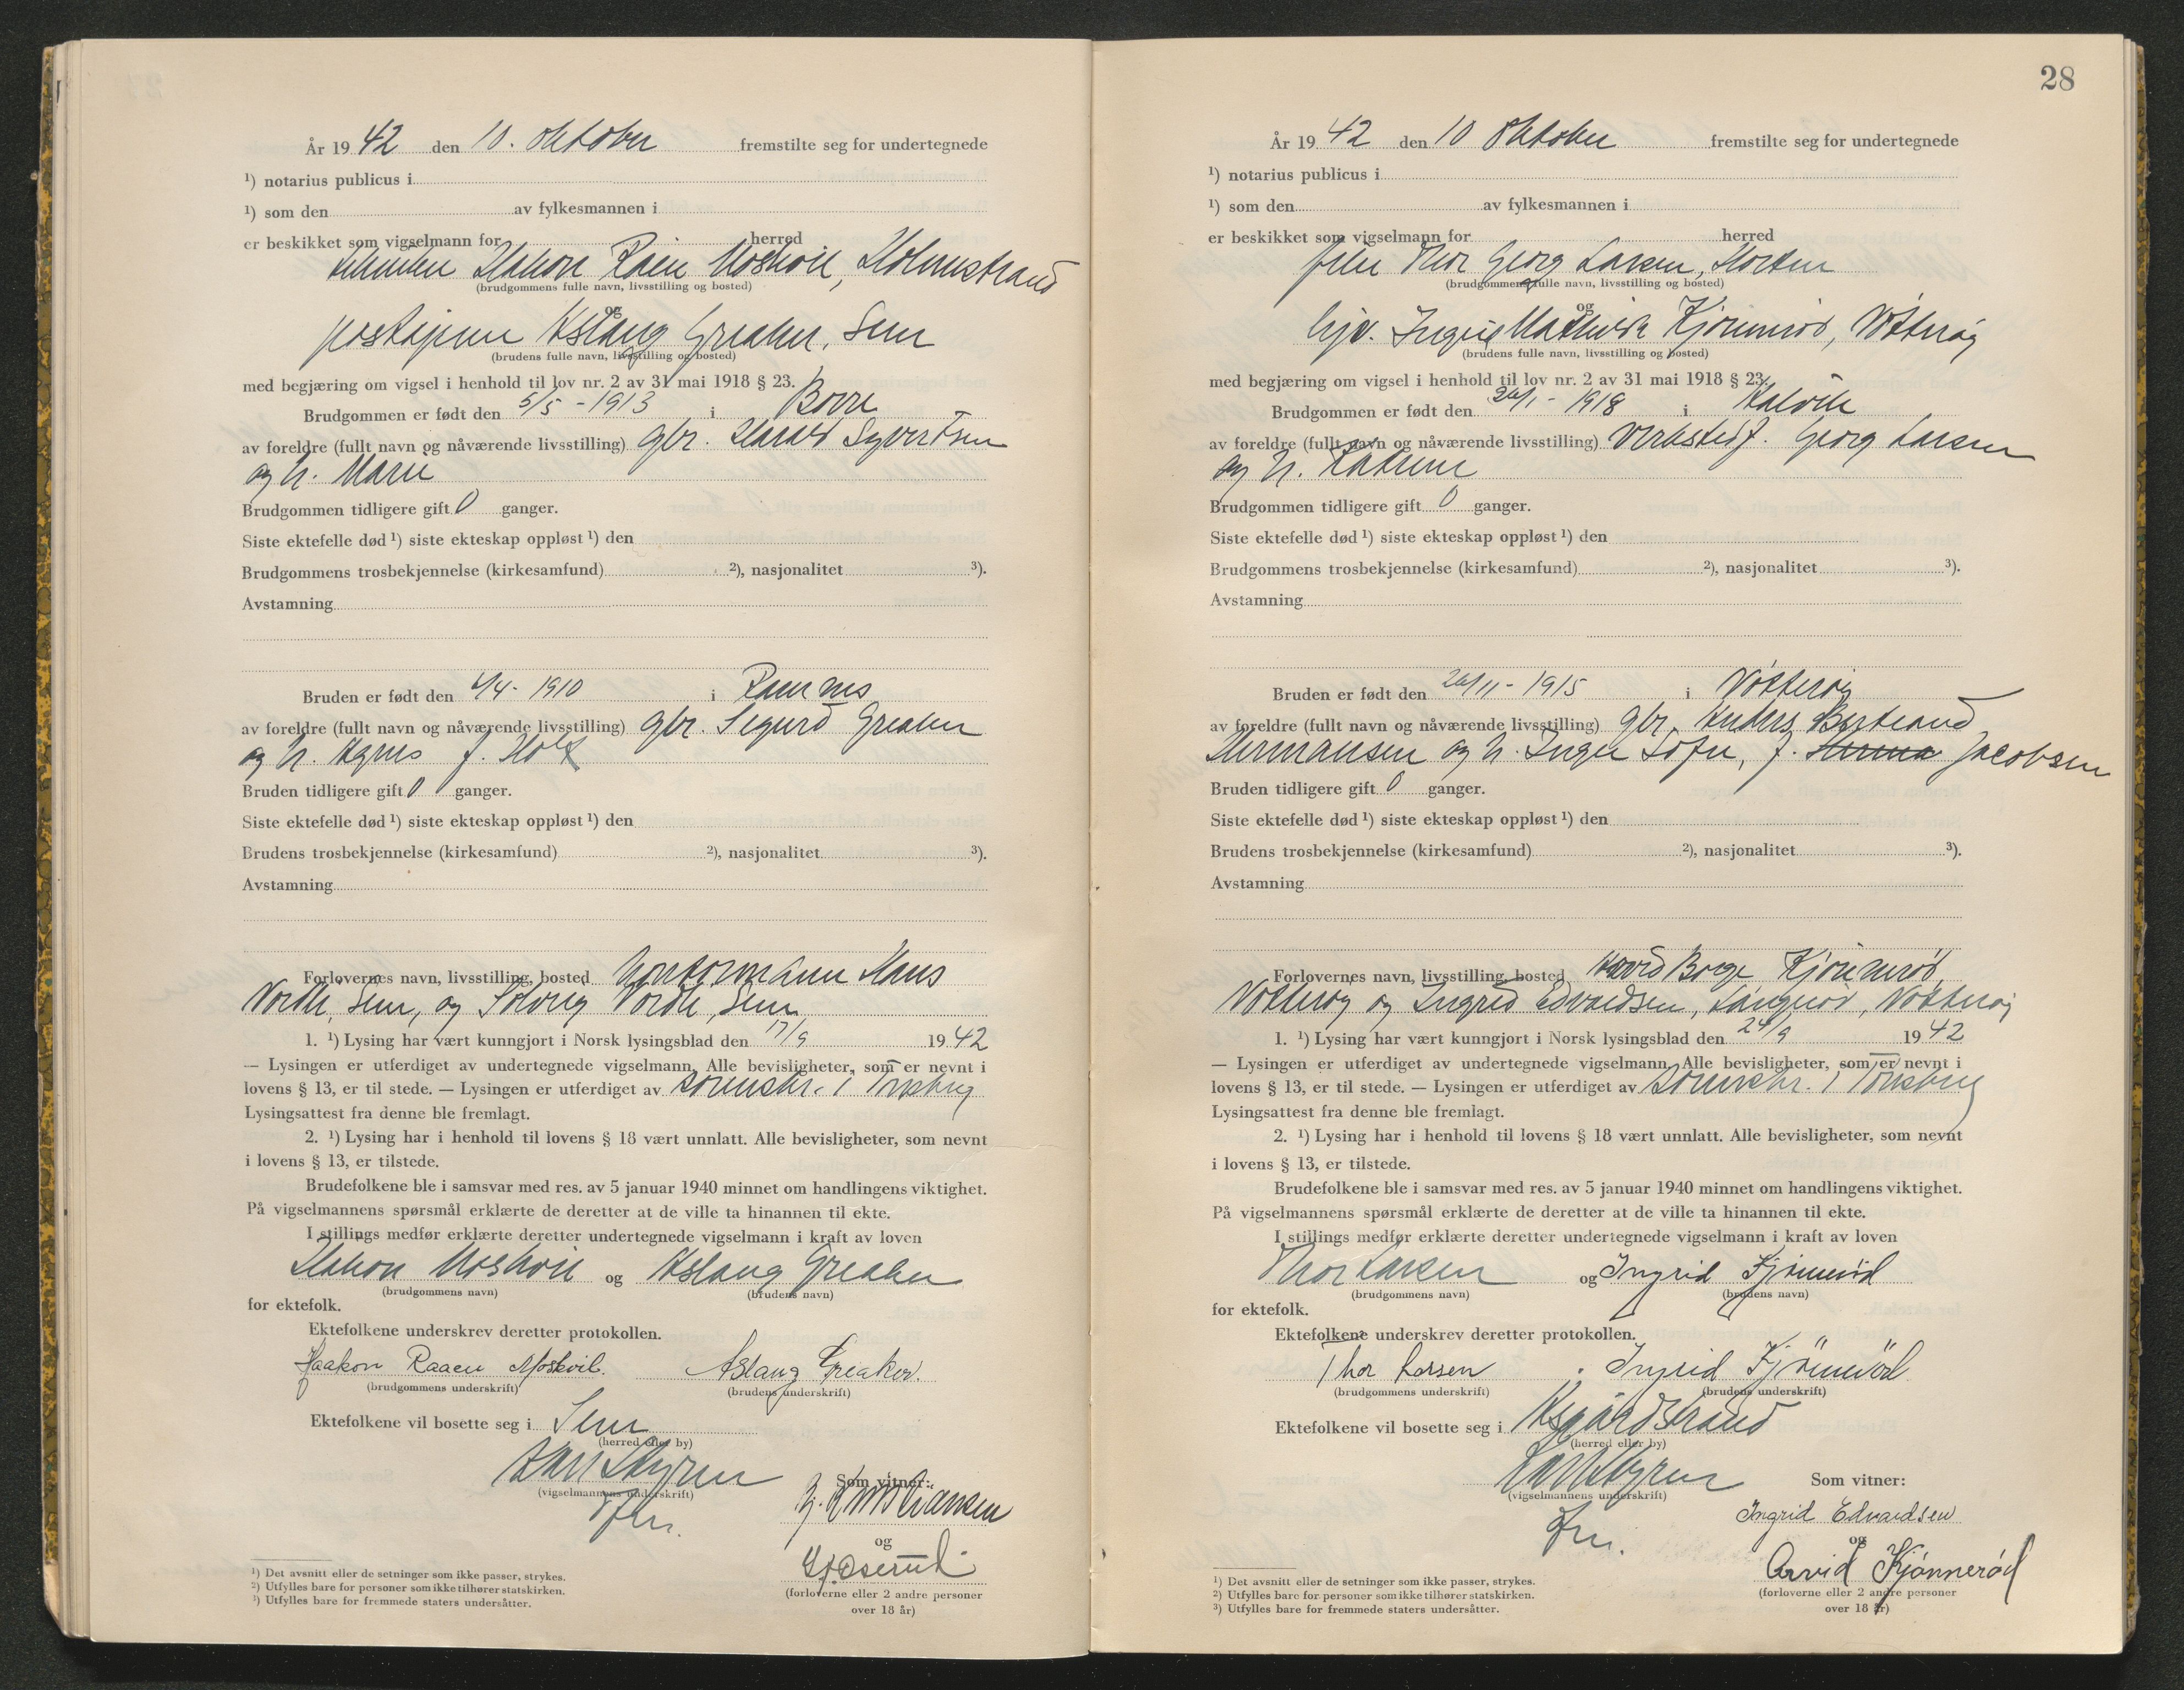 År 19 42 den 10. oktober fremstilte seg for undertegnede
¹) notarius publicus i
¹) som den av fylkesmannen i
er beskikket som vigselmann for herred
Hakon Raen Moskvil, Holmstrand
(brudgommens fulle navn, livsstilling og bosted)
og
Aslaug Greaker, Sem
(brudens fulle navn, livsstilling og bosted)
med begjæring om vigsel i henhold til lov nr. 2 av 31 mai 1918 § 23.
Brudgommen er født den 5/5 - 1913 i Borre
av foreldre (fullt navn og nåværende livsstilling) gbr. Harald Syvertsen
og h. Marie
Brudgommen tidligere gift 0 ganger.
Siste ektefelle død ¹) siste ekteskap oppløst ¹) den
Brudgommens trosbekjennelse (kirkesamfund) ²), nasjonalitet ³).
Avstamning
Bruden er født den 4/4 - 1910 i Ramnes
av foreldre (fullt navn og nåværende livsstilling) gbr. Sigurd Greaker
og h. Agnes f. Holt
Bruden tidligere gift 0 ganger.
Siste ektefelle død ¹) siste ekteskap oppløst ¹) den
Brudens trosbekjennelse (kirkesamfund) ²), nasjonalitet ³).
Avstamning
Forlovernes navn, livsstilling, bosted kontormann Hans
Vordle, Sem, og Solveig Vordle, Sem
1. ¹) Lysing har vært kunngjort i Norsk lysingsblad den 17/9 19 42
— Lysingen er utferdiget av undertegnede vigselmann. Alle bevisligheter, som er nevnt i
lovens § 13, er til stede. — Lysingen er utferdiget av sorenskr. i Tønsberg
Lysingsattest fra denne ble fremlagt.
2. ¹) Lysing har i henhold til lovens § 18 vært unnlatt. Alle bevisligheter, som nevnt
i lovens § 13, er tilstede.
Brudefolkene ble i samsvar med res. av 5 januar 1940 minnet om handlingens viktighet.
På vigselmannens spørsmål erklærte de deretter at de ville ta hinannen til ekte.
I stillings medfør erklærte deretter undertegnede vigselmann i kraft av loven
Hakon Moskvil og Aslaug Greaker
(brudgommens navn) (brudens navn)
for ektefolk.
Ektefolkene underskrev deretter protokollen.
Haakon Raaen Moskvil. Aslaug Greaker.
(brudgommens underskrift) (brudens underskrift)
Ektefolkene vil bosette seg i Sem
(herred eller by)
(vigselmannens underskrift) Som vitner:
Kristiansen
og
(forloverne eller 2 andre personer
over 18 år)
¹) Det avsnitt eller de setninger som ikke passer, strykes.
²) Utfylles bare for personer som ikke tilhører statskirken.
³) Utfylles bare for fremmede staters undersåtter.
28
År 19 42 den 10 oktober fremstilte seg for undertegnede
¹) notarius publicus i
¹) som den av fylkesmannen i
er beskikket som vigselmann for herred
Thor Georg Larsen, Horten
(brudgommens fulle navn, livsstilling og bosted)
og
Ingrid Mathilde Kjønnerød, Nøtterøy
(brudens fulle navn, livsstilling og bosted)
med begjæring om vigsel i henhold til lov nr. 2 av 31 mai 1918 § 23.
Brudgommen er født den 26/1 - 1918 i
av foreldre (fullt navn og nåværende livsstilling) verkstedf. Georg Larsen
og h. Katrine
Brudgommen tidligere gift 0 ganger.
Siste ektefelle død ¹) siste ekteskap oppløst ¹) den
Brudgommens trosbekjennelse (kirkesamfund) ²), nasjonalitet ³).
Avstamning
Bruden er født den 26/11 - 1915 i Nøtterøy
av foreldre (fullt navn og nåværende livsstilling) gbr. Anders Bertrand
Hermansen og h. Inger Sofie, f. Jacobsen
Bruden tidligere gift 0 ganger.
Siste ektefelle død ¹) siste ekteskap oppløst ¹) den
Brudens trosbekjennelse (kirkesamfund) ²), nasjonalitet ³).
Avstamning
Forlovernes navn, livsstilling, bosted Arvid Borge Kjønnerød,
Nøtterøy og Ingrid Edvardsen, Nøtterøy
1. ¹) Lysing har vært kunngjort i Norsk lysingsblad den 24/9 19 42
— Lysingen er utferdiget av undertegnede vigselmann. Alle bevisligheter, som er nevnt i
lovens § 13, er til stede. — Lysingen er utferdiget av sorenskr. i Tønsberg
Lysingsattest fra denne ble fremlagt.
2. ¹) Lysing har i henhold til lovens § 18 vært unnlatt. Alle bevisligheter, som nevnt
i lovens § 13, er tilstede.
Brudefolkene ble i samsvar med res. av 5 januar 1940 minnet om handlingens viktighet.
På vigselmannens spørsmål erklærte de deretter at de ville ta hinannen til ekte.
I stillings medfør erklærte deretter undertegnede vigselmann i kraft av loven
Thor Larsen og Ingrid Kjønnerød
(brudgommens navn) (brudens navn)
for ektefolk.
Ektefolkene underskrev deretter protokollen.
Thor Larsen Ingrid Kjönneröd
(brudgommens underskrift) (brudens underskrift)
Ektefolkene vil bosette seg i Åsgårdstrand
(herred eller by)
(vigselmannens underskrift) Som vitner:
Ingrid Edvardsen
og
Arvid Kjønnerød
(forloverne eller 2 andre personer
over 18 år)
¹) Det avsnitt eller de setninger som ikke passer, strykes.
²) Utfylles bare for personer som ikke tilhører statskirken.
³) Utfylles bare for fremmede staters undersåtter.